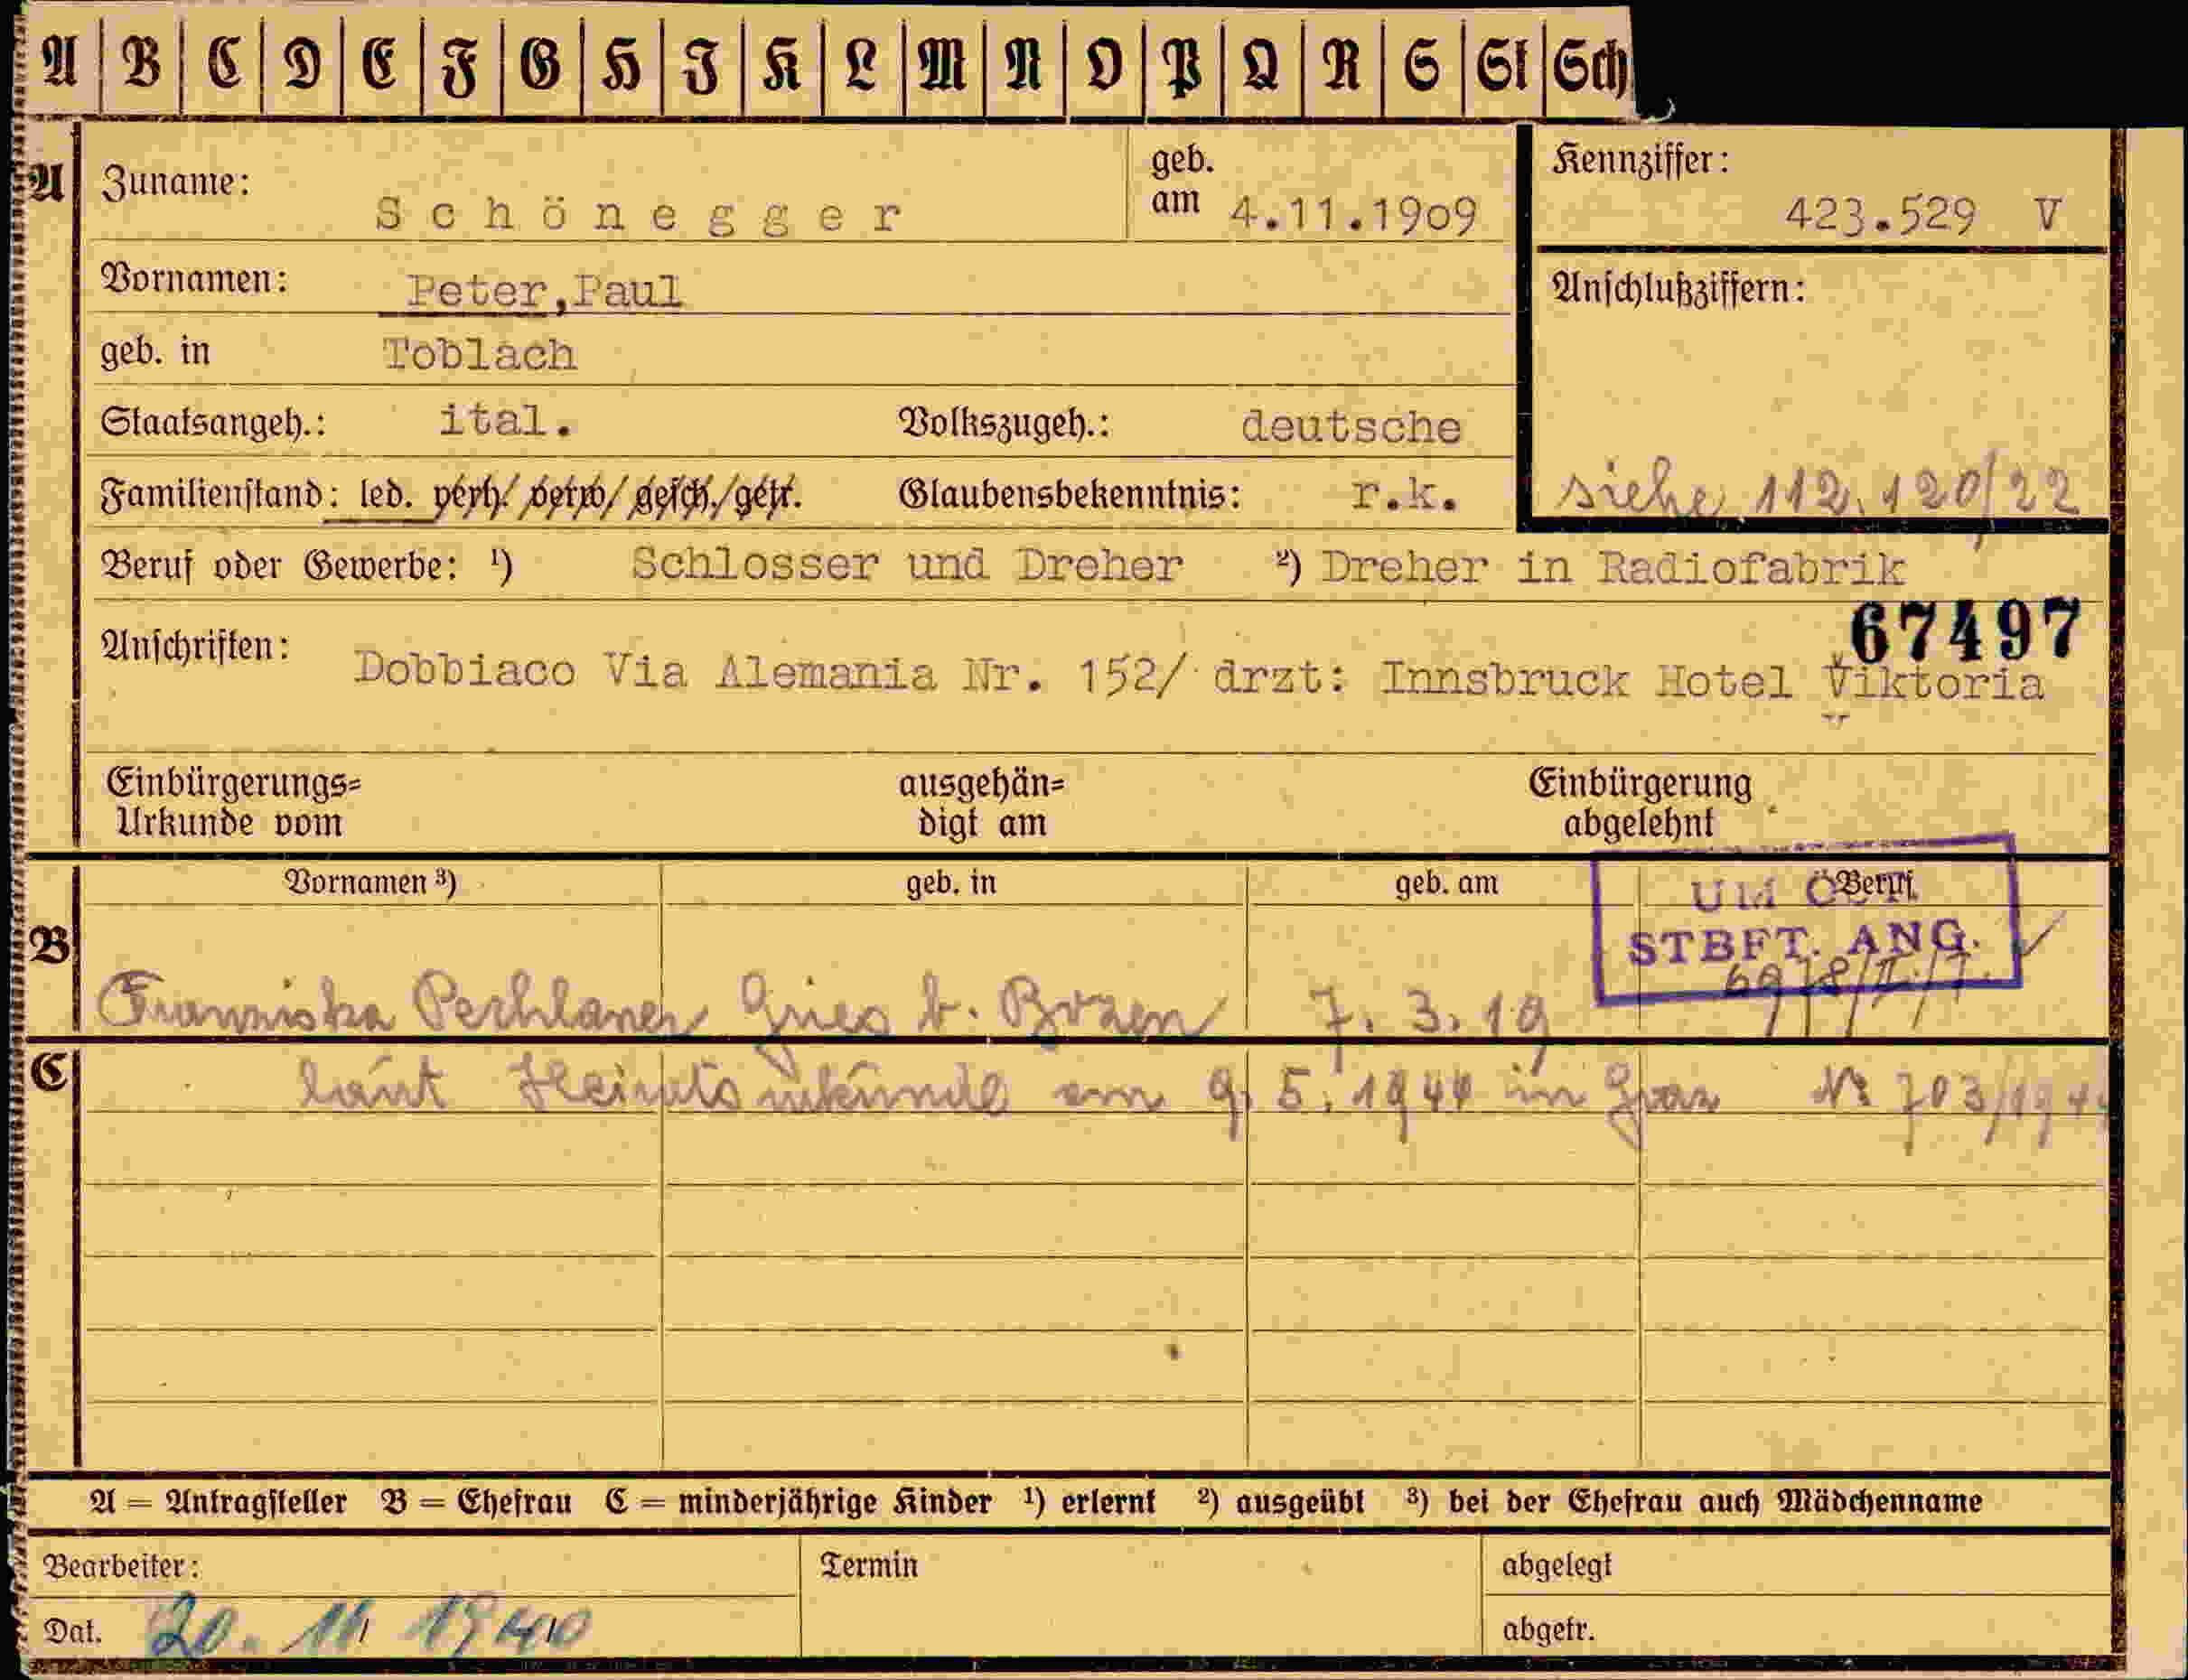 A B C D E F G H I K L M N O P Q R S St Sch
A Zuname: Schönegger geb. am 4.11.1909 Kennziffer: 423.529 V
Vornamen: Peter,Paul Anschlußziffern:
geb. in Toblach
Staatsangeh.: ital. Volkszugeh.: deutsche
Familienstand: led. verh./verw/gesch./getr. Glaubensbekenntnis: r.k. siehe 112.120/22
Beruf oder Gewerbe: ¹) Schlosser und Dreher ²) Dreher in Radiofabrik
67497
Anschriften: Dobbiaco Via Alemania Nr. 152/ drzt: Innsbruck Hotel Viktoria
Einbürgerungs= ausgehän= Einbürgerung
Urkunde vom digt am abgelehnt
Vornamen ³) geb. in geb. am Beruf
UM ÖST
B STBFT. ANG.
Franziska Pechlaner Gries b. Bozen 7. 3. 19
C laut Heiratsurkunde am 9. 5. 1944 in Graz Nr 703/194
A = Antragsteller B = Ehefrau C = minderjährige Kinder ¹) erlernt ²) ausgeübt ³) bei der Ehefrau auch Mädchenname
Bearbeiter: Termin abgelegt
Dat. 20. 11 1940 abgetr.